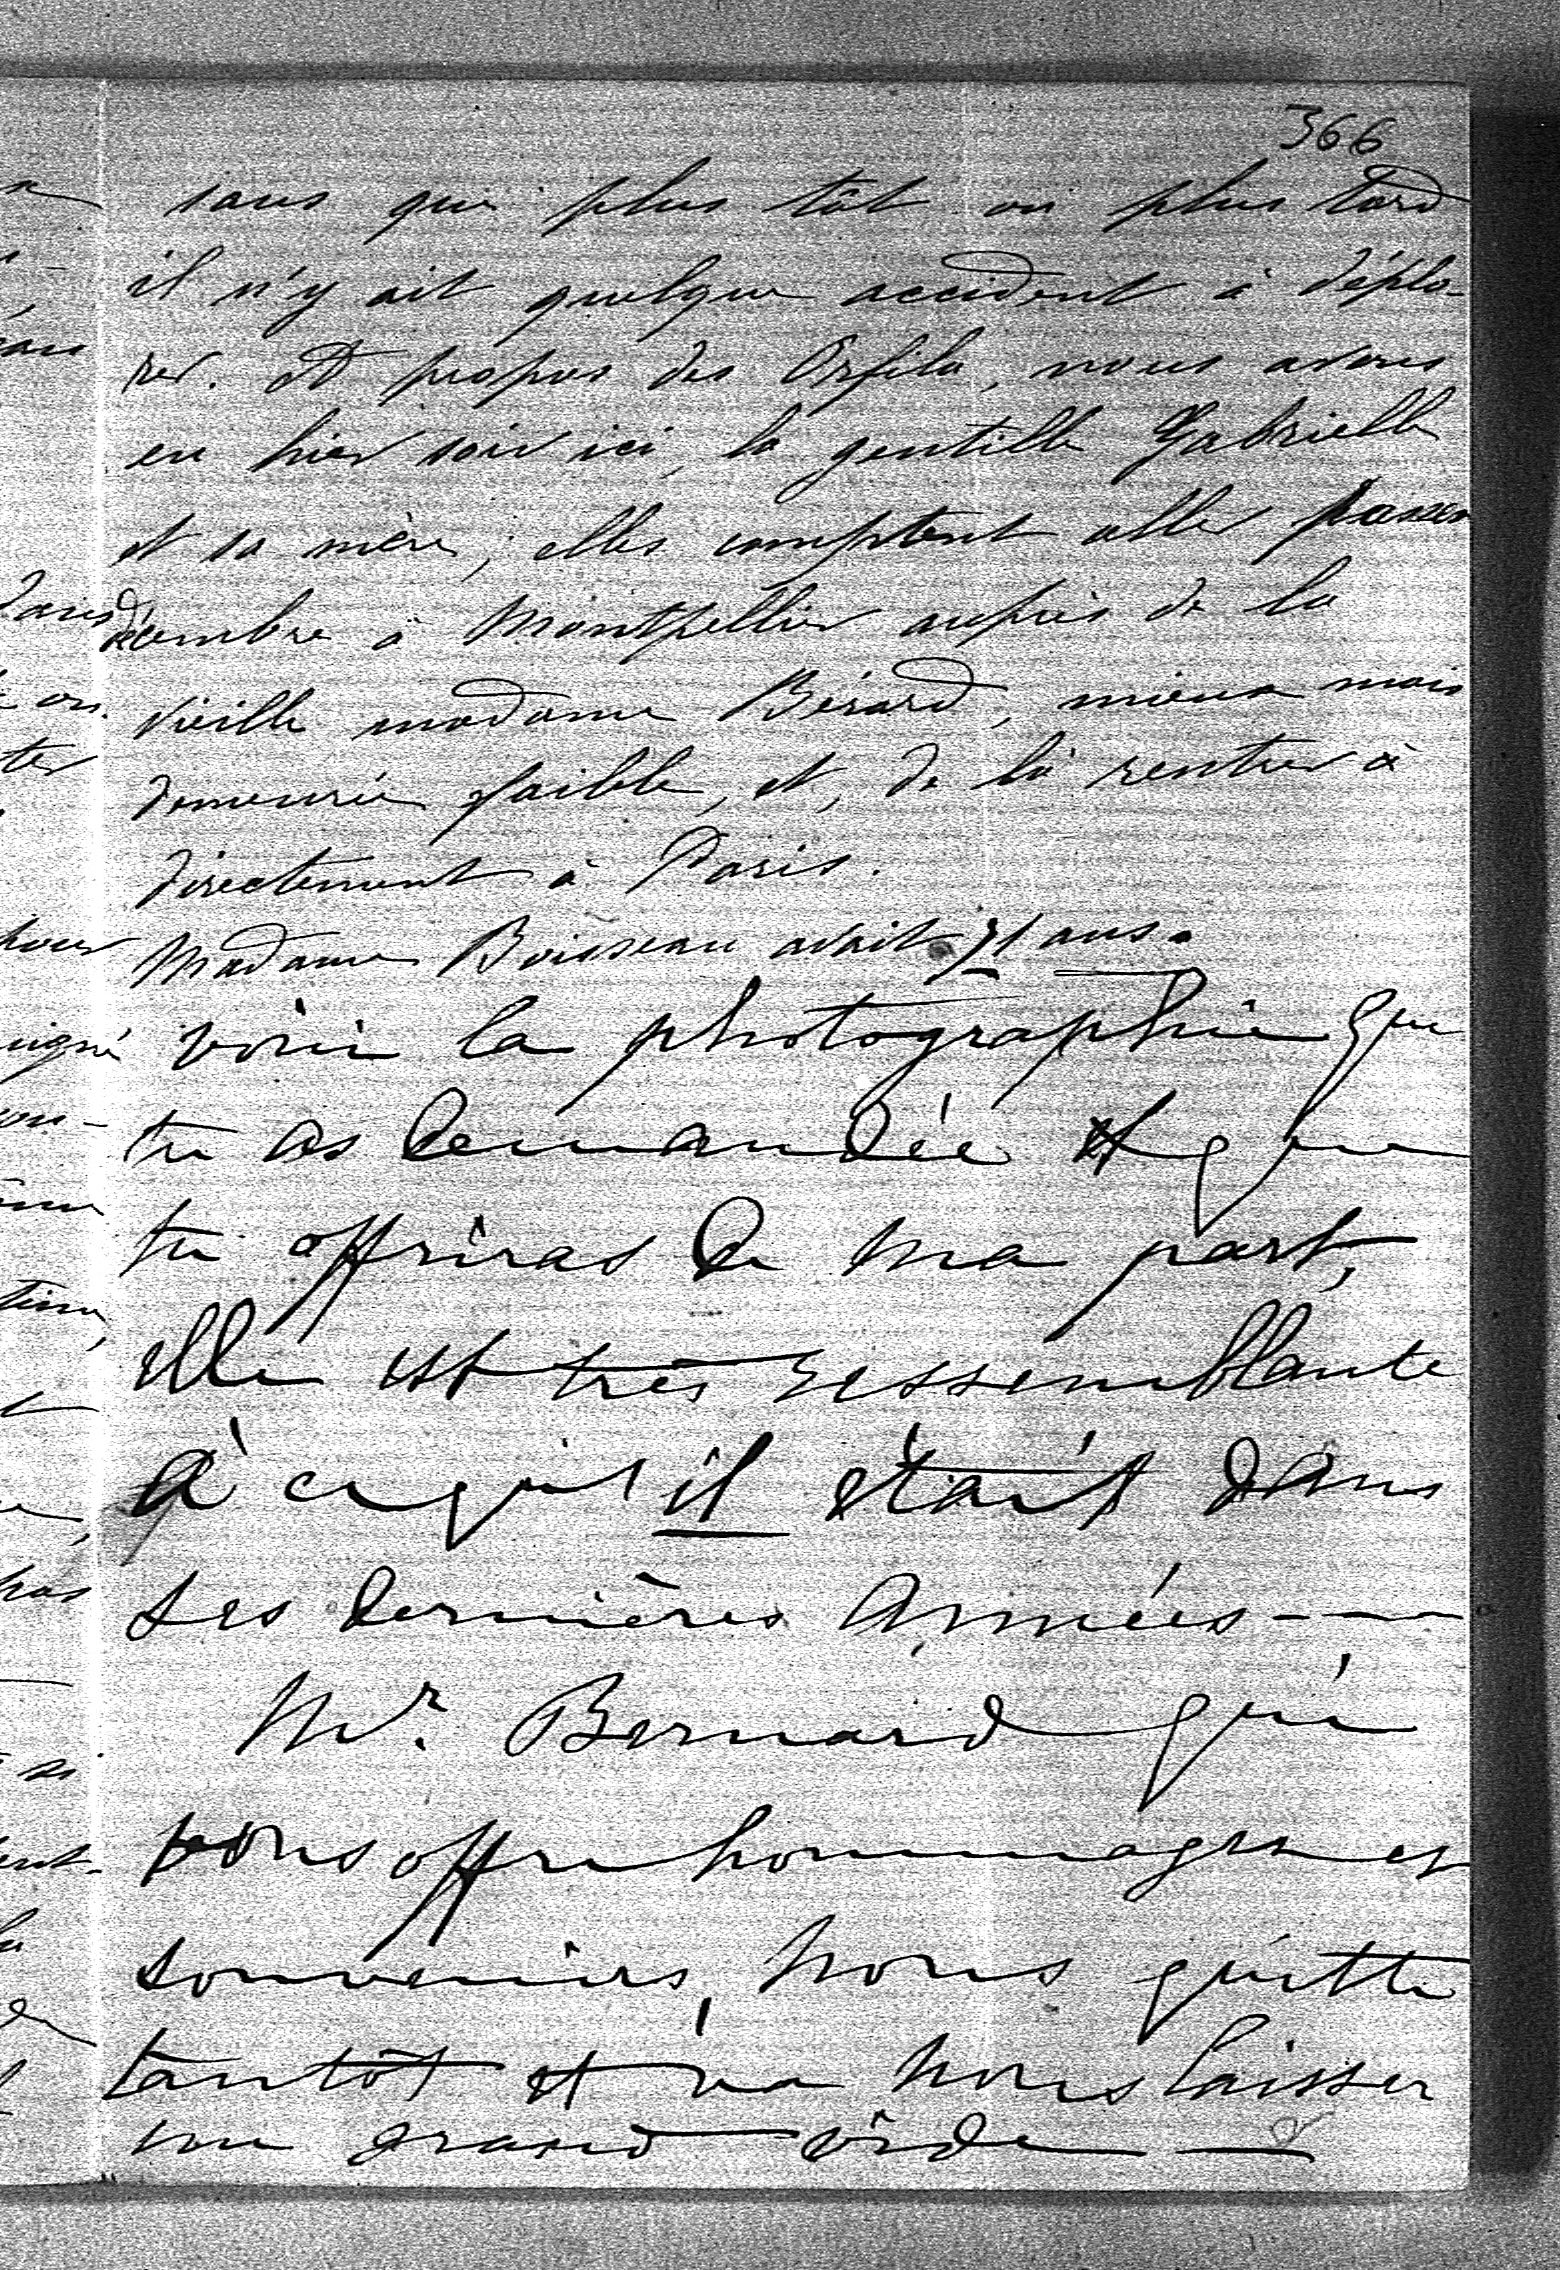 366
sans que plus tôt ou plus tard
il n'y ait quelque accident à déplo-
rer. A propos des Orfila, nous avons
eu hier soir ici, la gentille Gabrielle
et sa mère ; elles comptent aller passer
décembre à Montpellier auprès de la
vieille madame Bérard, mieux mais
demeurée faible, et, de là rentrer à
directement à Paris.
Madame Boisseau avait 71 ans.
voici la photographie que
tu as demandée et que
tu offriras de ma part,
elle est très ressemblante
à ce qu'il était dans
ses dernières années---
Mr. Bernard qui
vous offre hommages et
souvenirs, nous quitte
tantôt et va nous laisser
un grand vide —